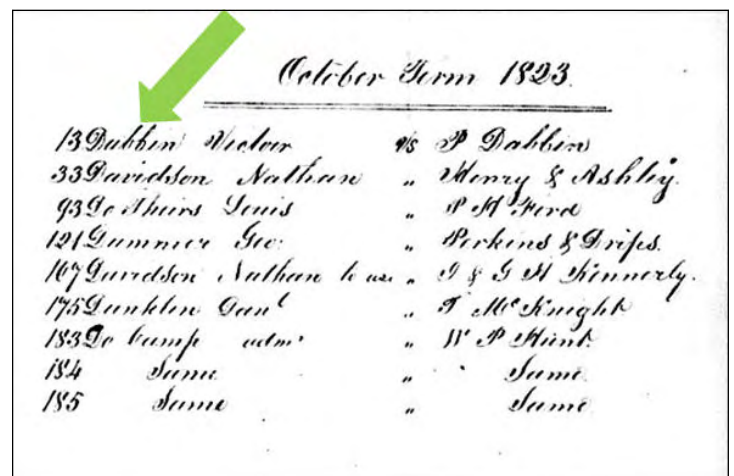 October Term 1823.
13 Dubbin Victoir vs P Dabbin
33 Davidson Nathan " Henry & Ashley.
93 De Thiers Louis " P H Ford
121 Dummer Geo: " Perkins & Drips.
167 Davidson Nathan to use " J & G H Kennerly.
175 Dunklin Danl " T McKnight
183 De Camp admr " W P Hunt
184 Same " Same
185 Same " Same